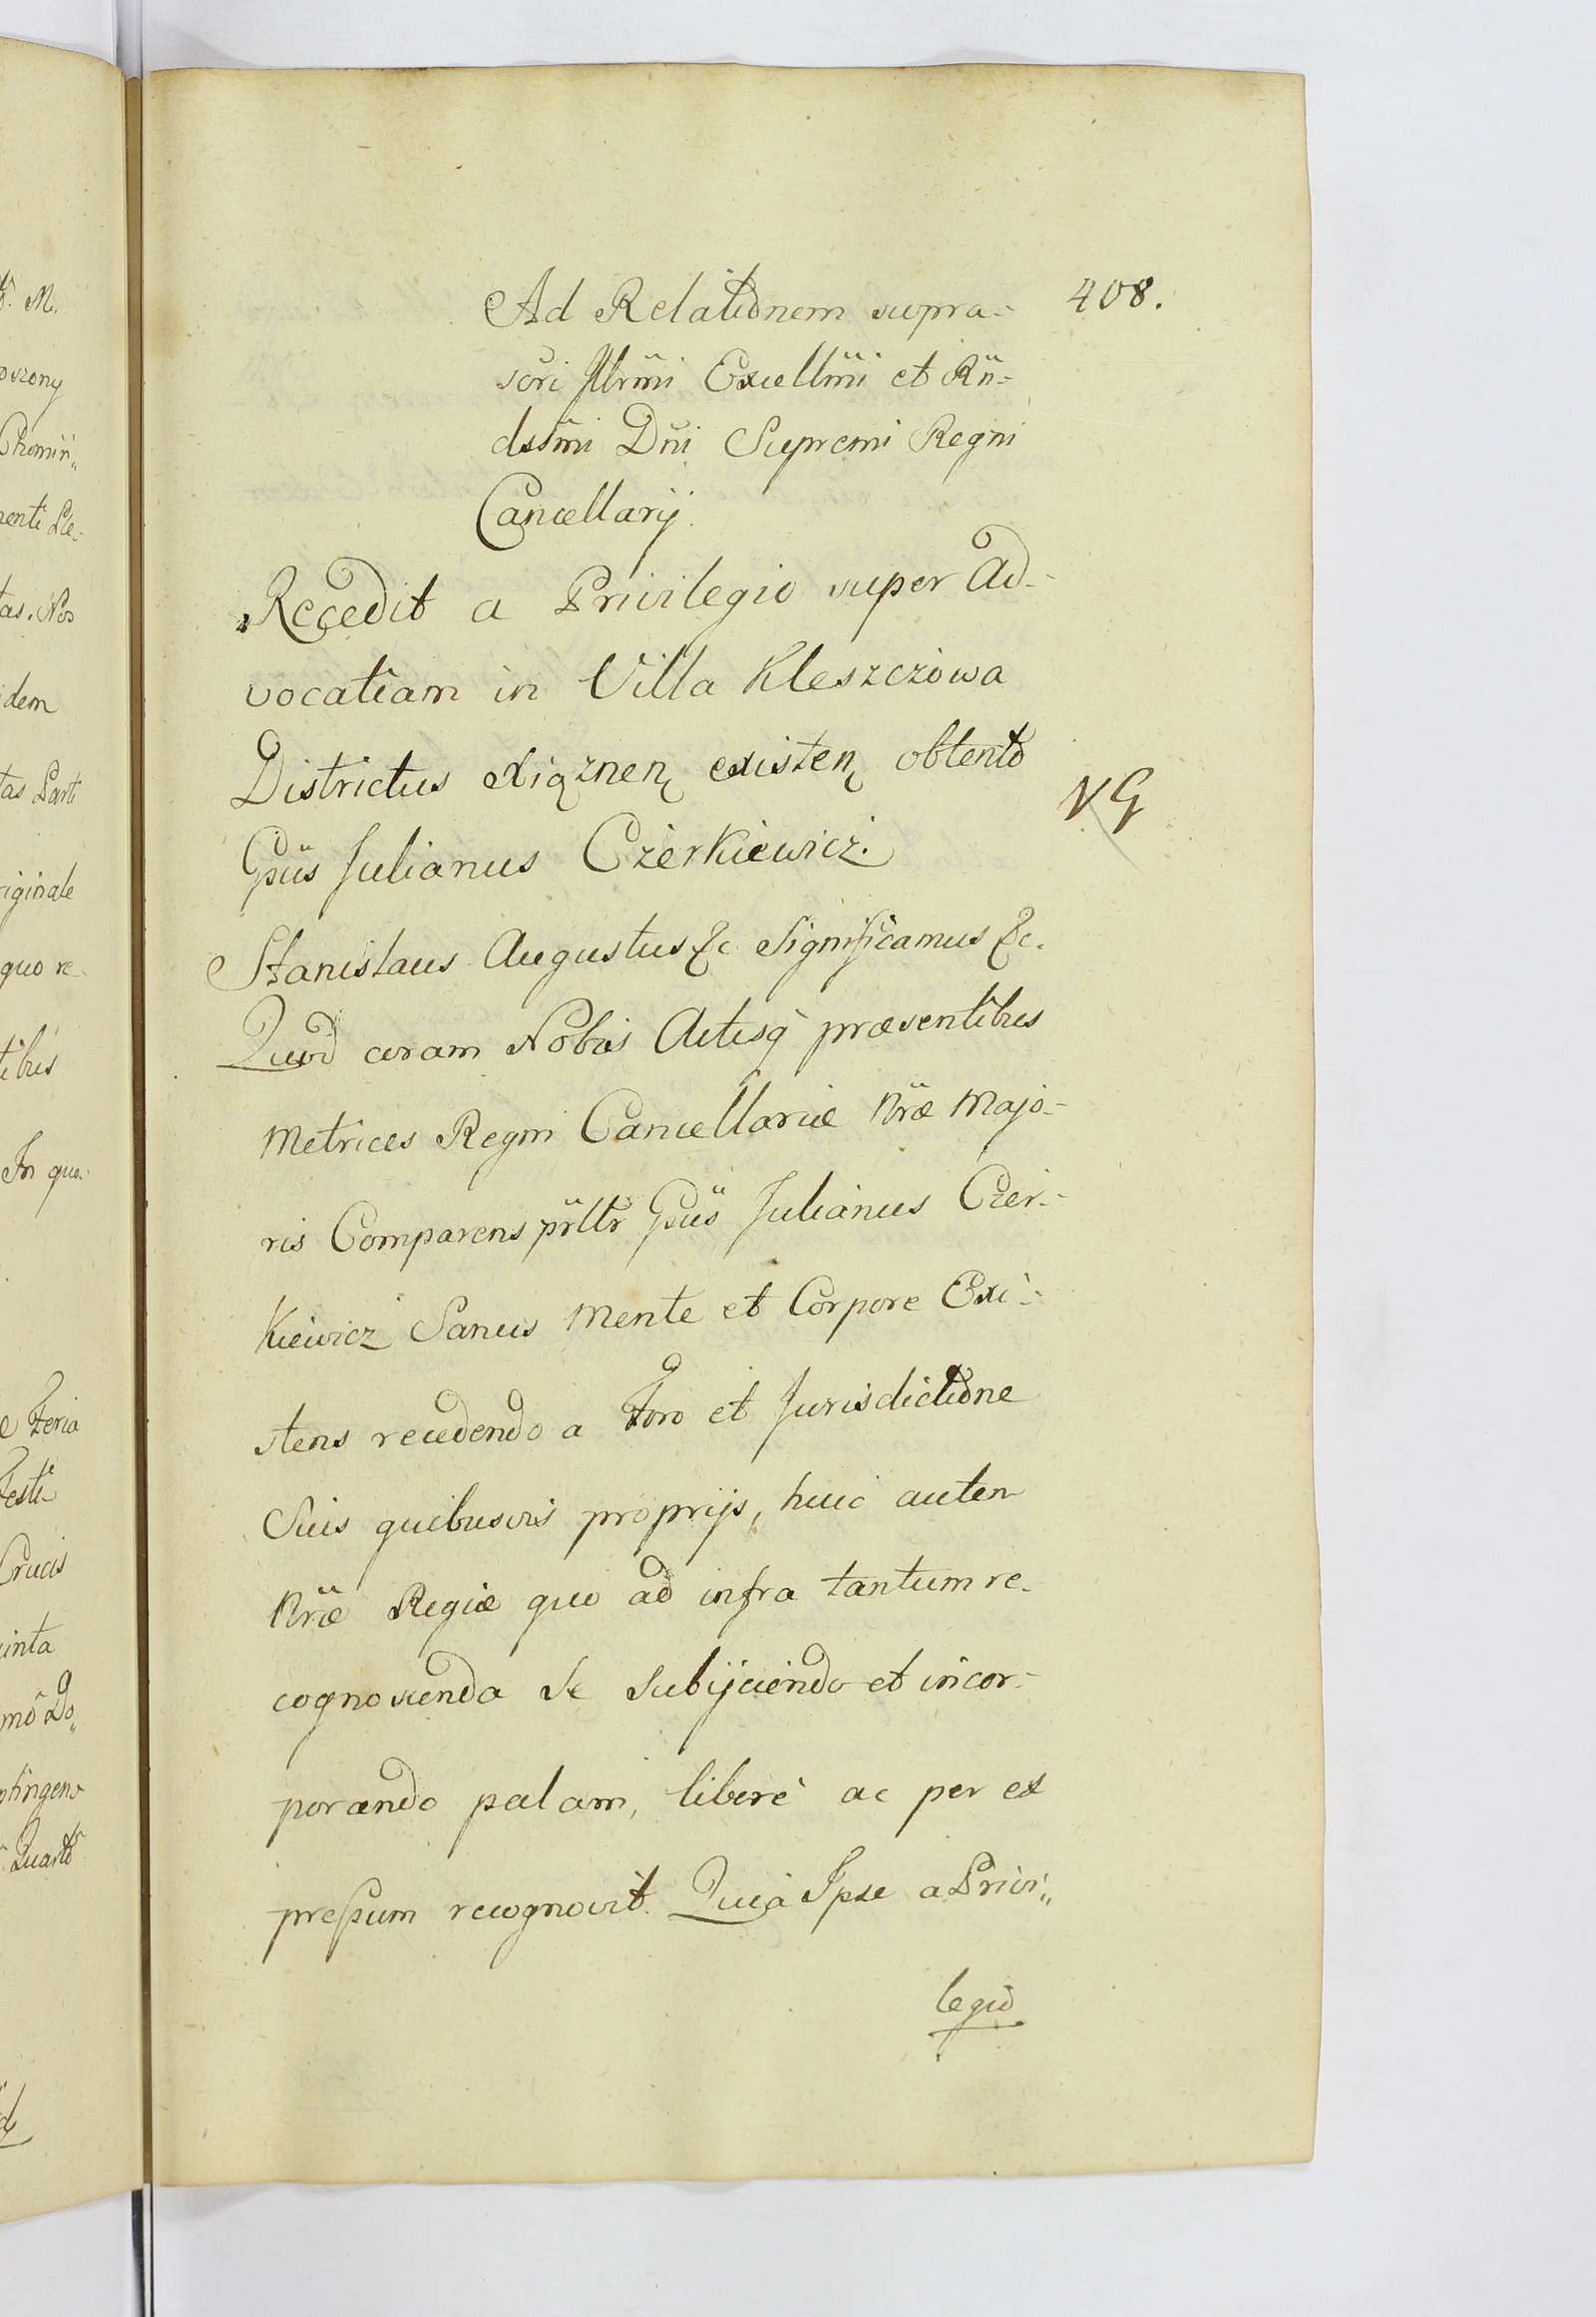 Ad Relationem supra-
408.
scri Illrmi Excellmi et Rn-
dssmi Dni Supremi Regni
Cancellarij.
Recedit a Privilegio super Ad-
vocatiam in Villa Kleszczowa
Districtus Xiąznen existen obtento
NG
Gsus Julianus Czerkiewicz.
Stanislaus Augustus &c Significamus &c.
Quod coram Nobis Actisq præsentibus
Metrices Regni Cancellariæ Nræ Majo-
ris Comparens prltr Gsus Julianus Czer-
kiewicz Sanus Mente et Corpore Exi-
stens recedendo a Foro et Jurisdictione
Suis quibusvis proprijs, huic autem
Nræ Regiæ quo ad infra tantum re-
cognoscenda Se Subijciendo et incor-
porando palam, liberè ac per ex
preſsum recognovit. Quia Ipse a Privi„
legio
M.
Chomin„
tas. Nos
idem
tas Parti
riginale
quo re-
tibus
In quo-
Feria
Festi
Crucis
uinta
mo Do„
ntingens
Quarto